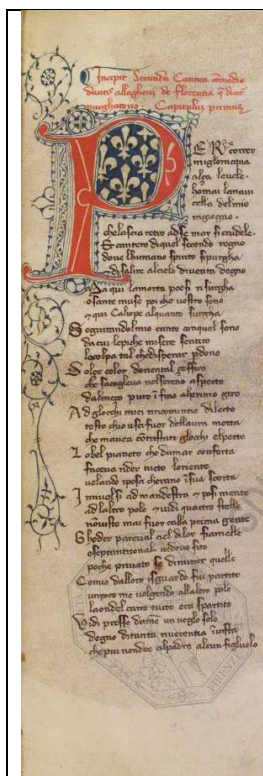 Incipit Secunda Cantica comedie
dantis allagherij de florentia q dicit
purghatorio Capitulus primus
PER correr
miglor aqua
alça leuele
homai lanaui
cella delmio
ingegno
che lascia retro adse mar si crudele
E cantero diquel secondo regno
doue lhumano spirito si purgha
di salire alcielo diuenta degno
Ma qui lamorta poesi risurgha
o sante muse poi che uostro sono
e qui Caliope alquanto surgha
Seguitando lmio canto conquel sono
da cui le piche misere sentiro
lo colpo tal che disperar pdono
Dolce color doriental çaffiro
che saccoglieua nelsereno aspecto
dalmeço puro in fino alprimo giro
Agliochi miei ricomincio dilecto
tosto chio usci fuor dellaura morta
che mauea contristati gliochi elpecto
Lo bel pianeto che damar conforta
faceua rider tucto loriente
uelando ipesci cherano isua scorta
I mi uolsi ad mandestra e posi mente
ad laltro polo e uidi quatro stelle
non uiste mai fuor calla prima gente
Goder pareual ciel dilor fiamelle
o septentrional uedouo sito
poche priuato se dimirar quelle
Comio dalloro isguardo fui partito
un poco me uolgendo allaltro polo
la ondel carro tucto era sparito
Vidi presso dame un ueglo solo
degno di tanta reuerentia iuista
che piu nondee alpadre alcun figluolo